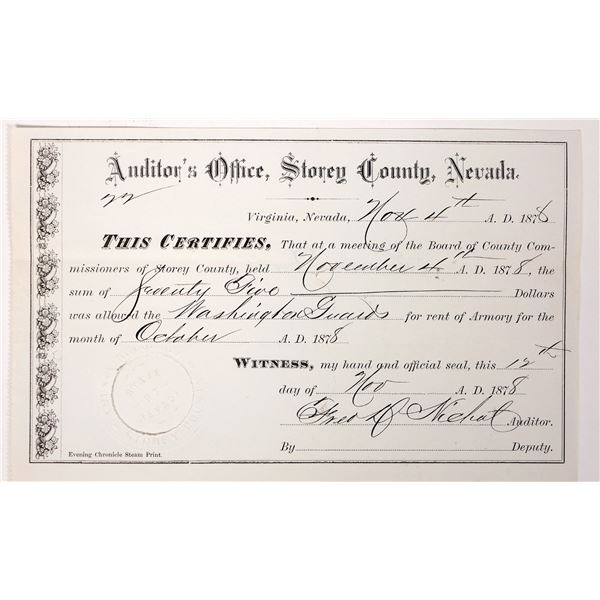 Auditor's Office, Storey County, Nevada.
22
Virginia, Nevada, Nov 4th A. D. 1878
THIS CERTIFIES, That at a meeting of the Board of County Com-
missioners of Storey County, held November 4th A. D. 1878, the
sum of Seventy Five Dollars
was allowed the Washington Guards for rent of Armory for the
month of October A. D. 1878
WITNESS, my hand and official seal, this 12th
day of Nov A. D. 1878
Fred D Nichol Auditor.
By Deputy.
Evening Chronicle Steam Print.